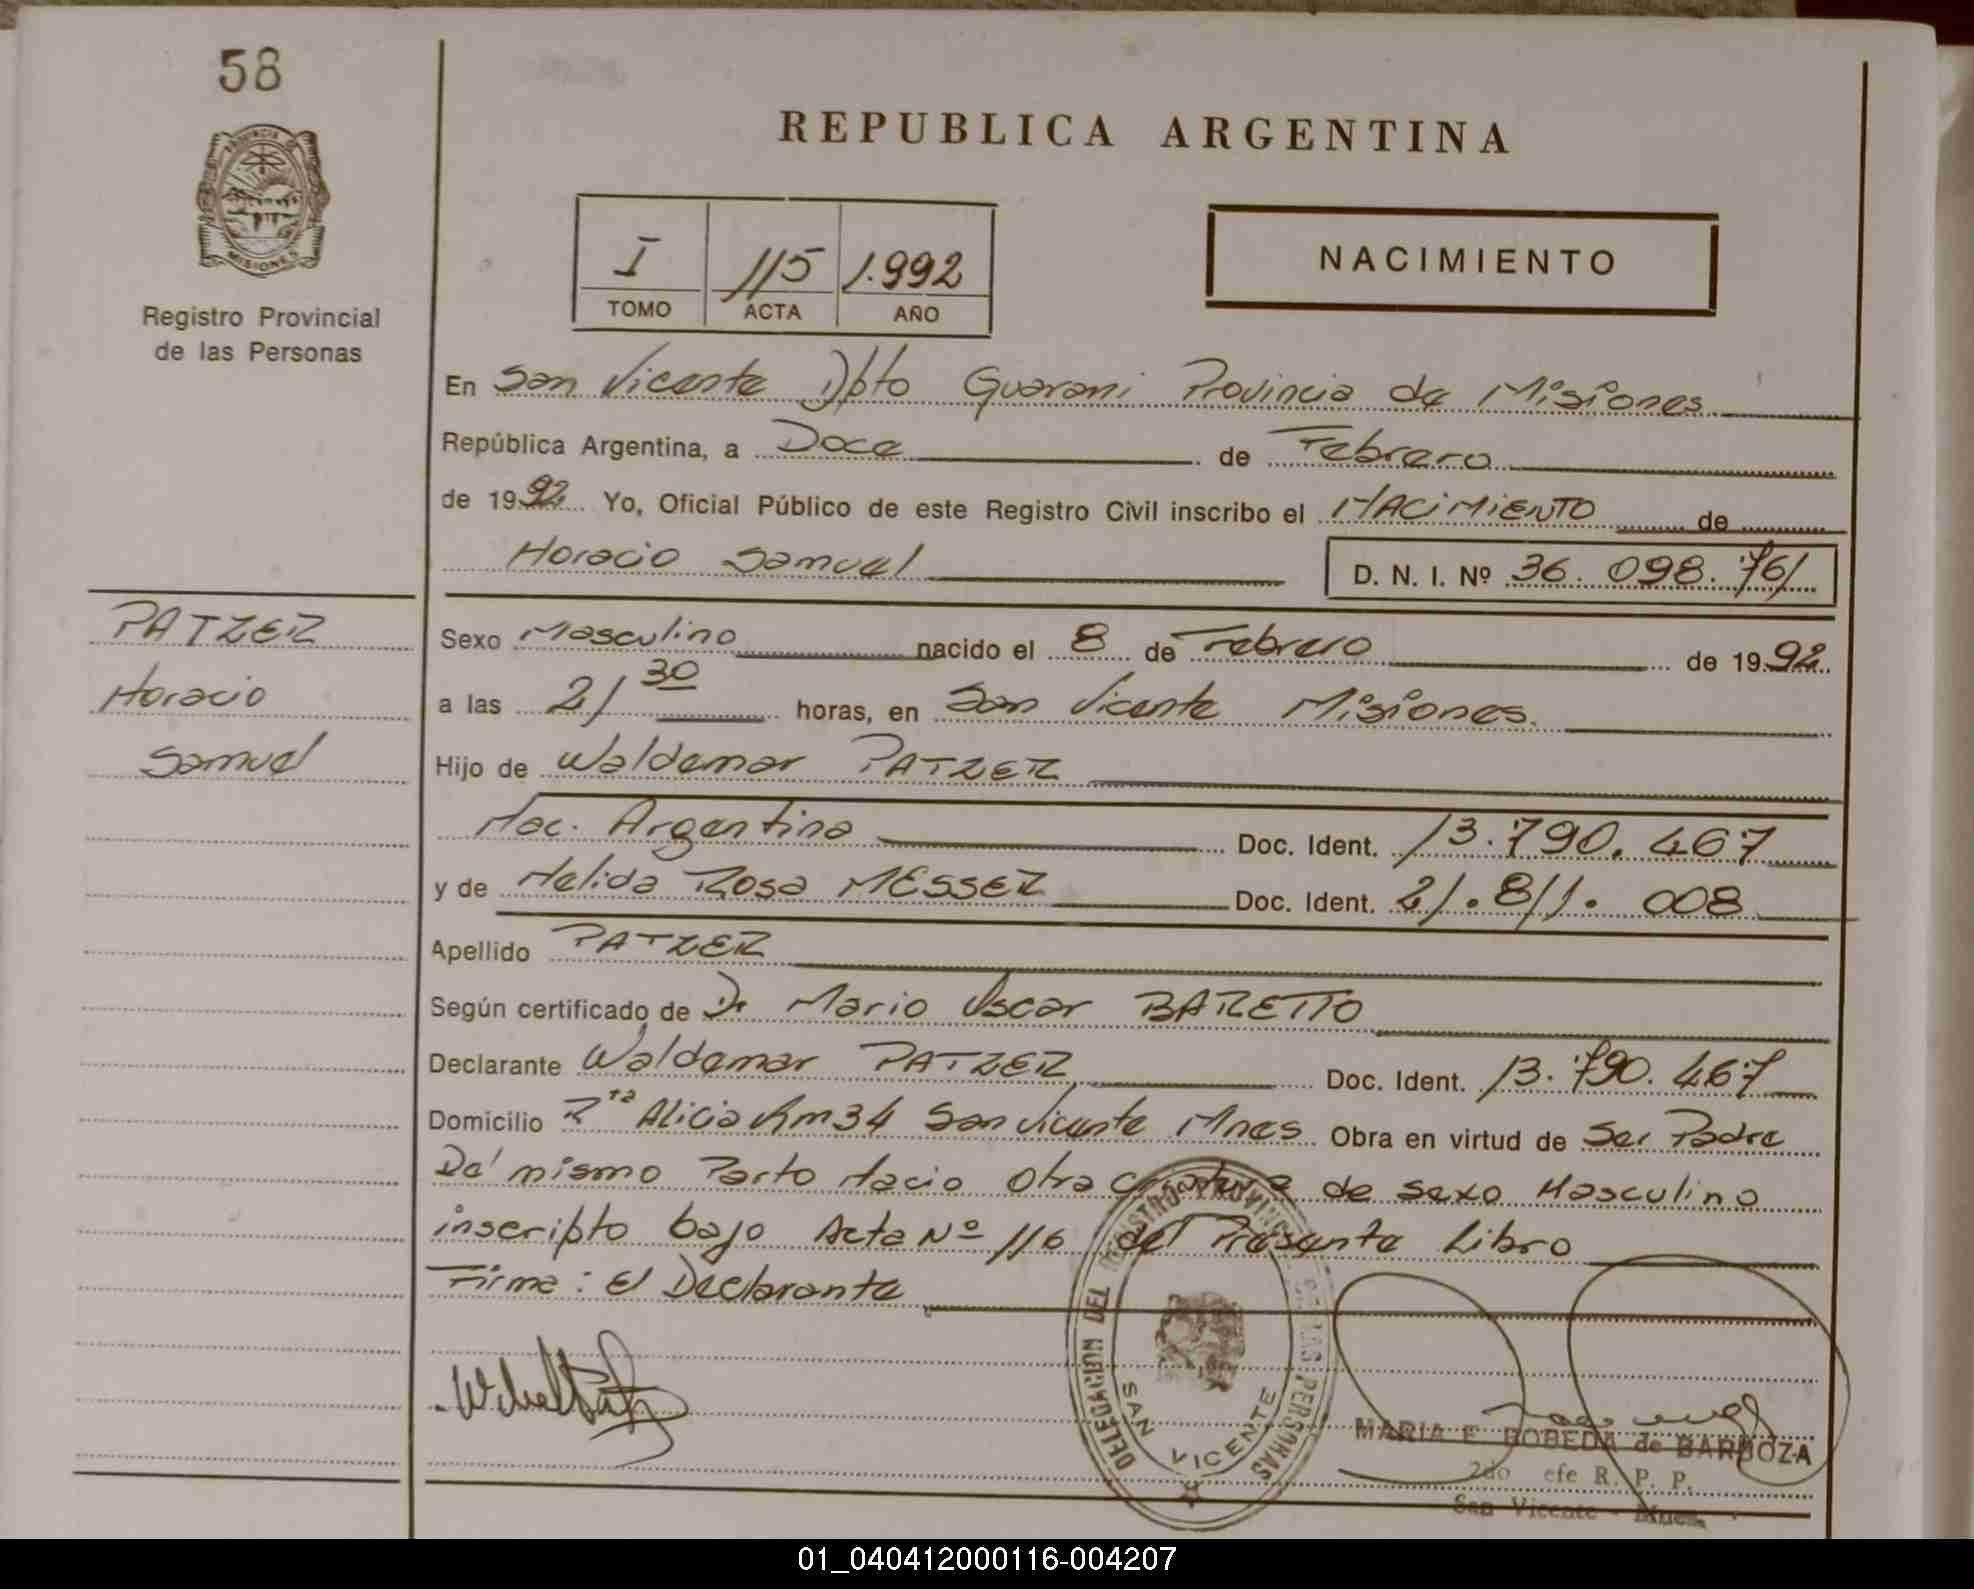 58
REPUBLICA ARGENTINA
PROVINCIA DE
MISIONES
Registro Provincial
de las Personas
I 115 1.992
TOMO ACTA AÑO
NACIMIENTO
En San Vicente Dpto Guarani Provincia de Misiones
República Argentina, a Doce de Febrero
de 1992 Yo, Oficial Público de este Registro Civil inscribo el NACIMIENTO de
Horacio Samuel D. N. I. Nº 36.098.761
PATZER
Horacio
Samuel
Sexo Masculino nacido el 8 de Febrero de 1992
a las 21 30 horas, en San Vicente Misiones.
Hijo de Waldemar PATZER
Nac. Argentina Doc. Ident. 13.790.467
y de Nelida Rosa MESSER Doc. Ident. 21.811.008
Apellido PATZER
Según certificado de Dr Mario Oscar BARETTO
Declarante Waldemar PATZER Doc. Ident. 13.790.467
Domicilio Rta Alicia Km 34 San Vicente Mnes Obra en virtud de Ser Padre
De mismo Parto Nacio otra Criatura de sexo Masculino
inscripto bajo Acta Nº 116 del Presente Libro
Firma: El Declarante
DELEGACION DEL REGISTRO PROVINCIAL DE LAS PERSONAS
SAN VICENTE
MARIA E BOBEDA de BARBOZA
2do efe R. P. P.
San Vicente - Mnes.
01_040412000116-004207